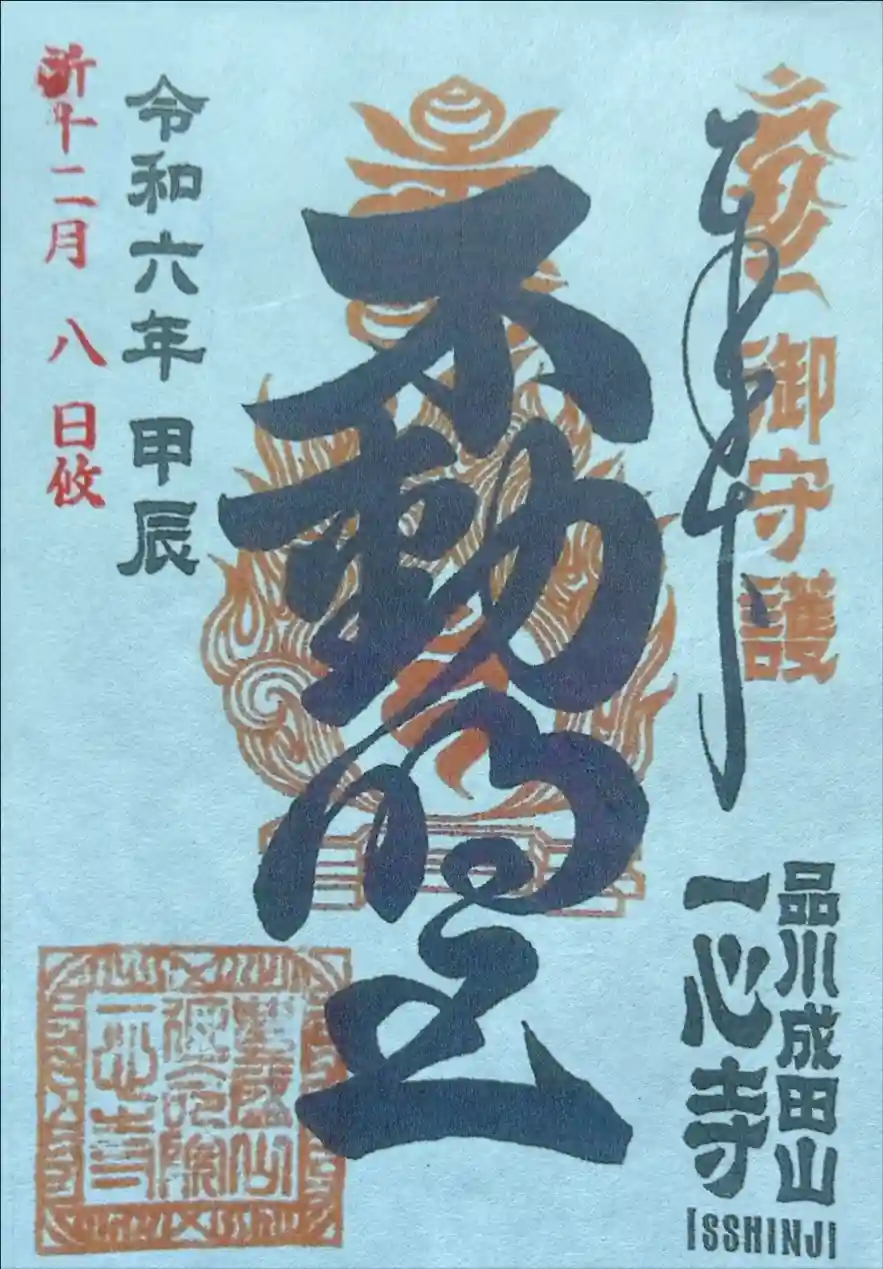 奉拝
御守護
品川成田山
一心寺
ISSHINJI
不動明王
令和六年 甲辰
十二月 八 日
一心寺